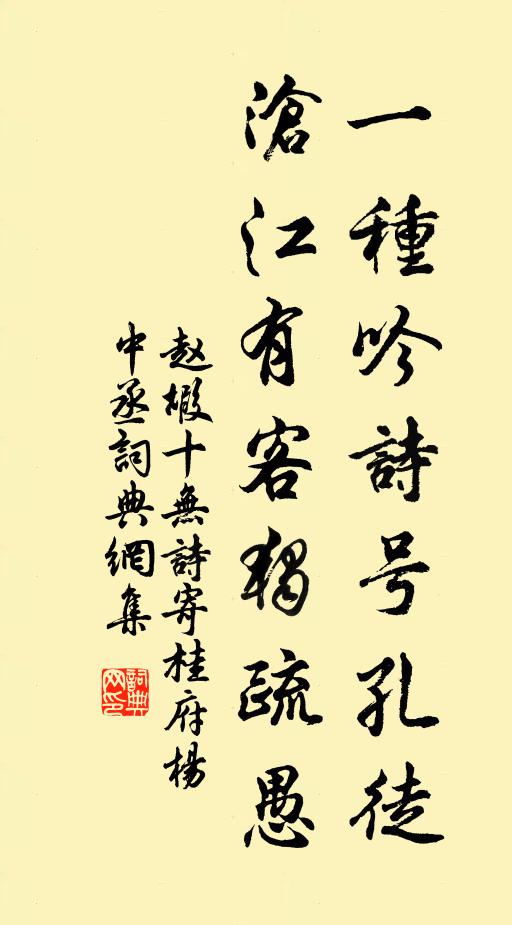 一種吟詩号孔徒
滄江有客獨疏愚
赵嘏十無詩寄桂府楊
中丞詞典網集
詞典網印